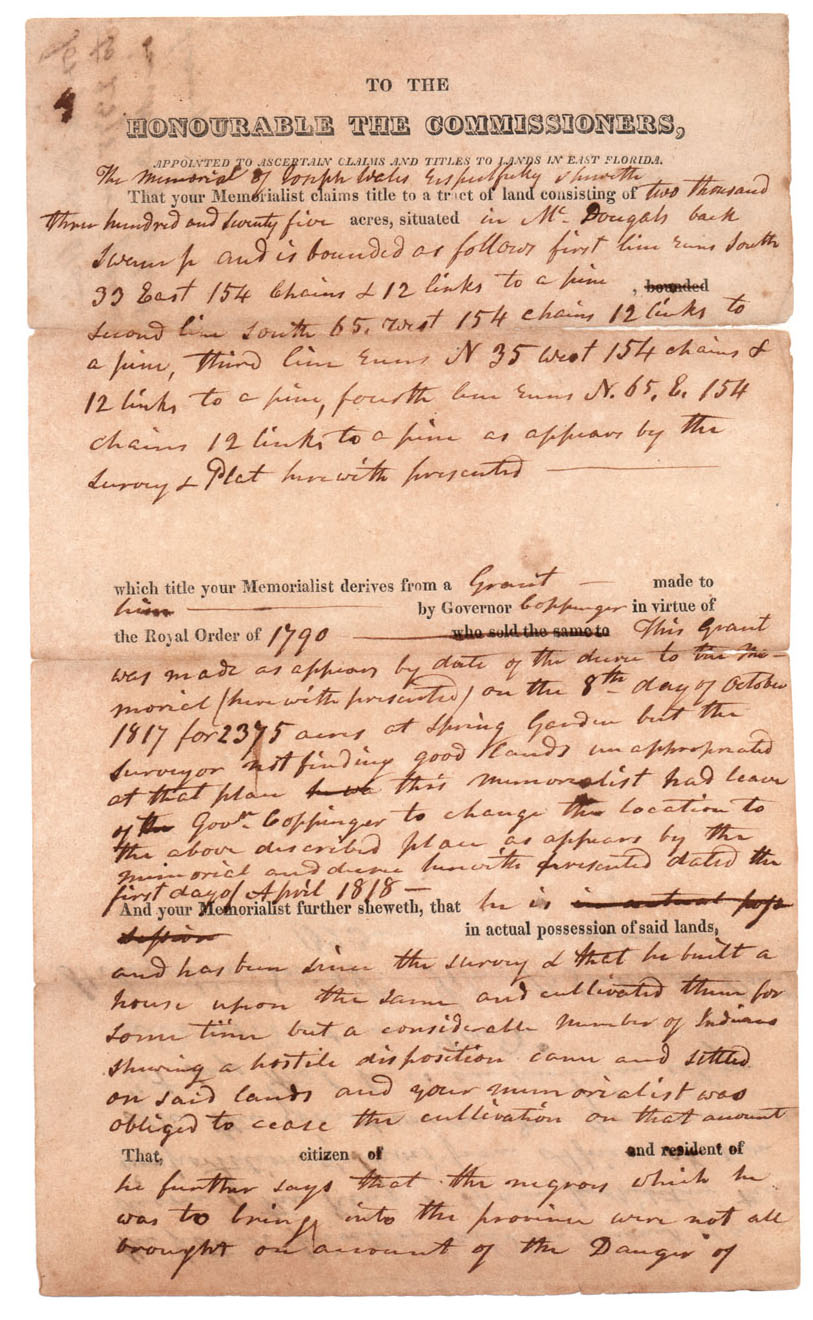 TO THE
HONOURABLE THE COMMISSIONERS,
APPOINTED TO ASCERTAIN CLAIMS AND TITLES TO LANDS IN EAST FLORIDA.
The Memorial of Joseph Wales respectfully sheweth
That your Memorialist claims title to a tract of land consisting of two thousand
three hundred and seventy five acres, situated in Mc Dougals back
Swamp and is bounded as follows first line runs South
33 East 154 Chains & 12 links to a pine , bounded
second line South 65. West 154 chains 12 links to
a pine, third line runs N 35 West 154 chains &
12 links to a pine, fourth line runs N. 65. E. 154
chains 12 links to a pine as appears by the
survey & Plat herewith presented
which title your Memorialist derives from a Grant made to
him by Governor Coppinger in virtue of
the Royal Order of 1790 who sold the same to This Grant
was made as appears by date of the decree to the Me-
morial (herewith presented) on the 8th day of October
1817 for 2375 acres at Spring Garden but the
surveyor not finding good lands unappropriated
at that place this memorialist had leave
of the Govr. Coppinger to change the location to
the above described place as appears by the
memorial and decree herewith presented dated the
first day of April 1818 —
And your Memorialist further sheweth, that he is in actual pos-
session in actual possession of said lands,
and has been since the survey & that he built a
house upon the same and cultivated them for
some time but a considerable number of Indians
shewing a hostile disposition came and settled
on said lands and your memorialist was
obliged to cease the cultivation on that account
That, citizen of and resident of
he further says that the negroes which he
was to bring into the province were not all
brought on account of the Danger of